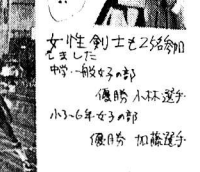 女性剣士も25名参加
しました
中学、一般女子の部
優勝 小林選手
小3〜6年女子の部
優勝 加藤選手